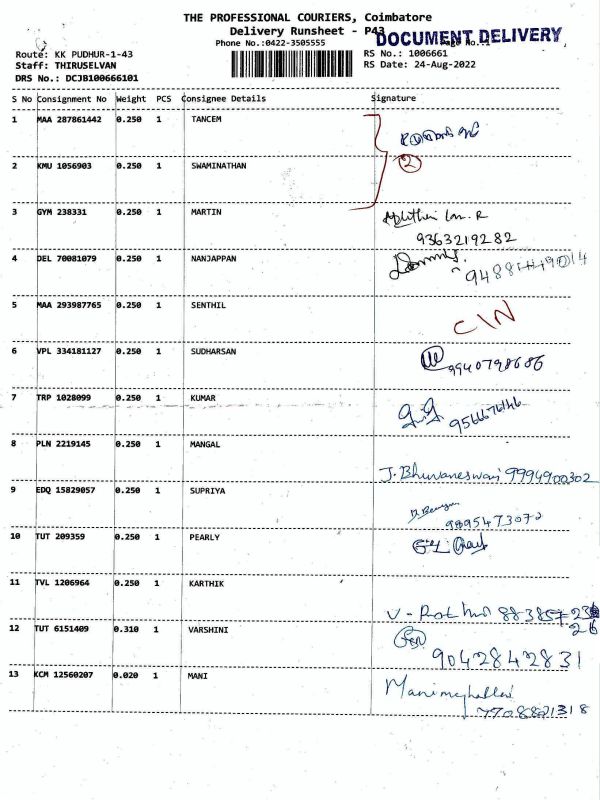 THE PROFESSIONAL COURIERS, Coimbatore
Delivery Runsheet - P43
DOCUMENT DELIVERY
Phone No.:0422-3505555
Route: KK PUDHUR-1-43
RS No.: 1006661
Staff: THIRUSELVAN
RS Date: 24-Aug-2022
DRS No.: DCJB100666101
S No Consignment No Weight PCS Consignee Details Signature
1 MAA 287861442 0.250 1 TANCEM
2 KMU 1056903 0.250 1 SWAMINATHAN 2
3 GYM 238331 0.250 1 MARTIN
9363219282
4 DEL 70081079 0.250 1 NANJAPPAN
5 MAA 293987765 0.250 1 SENTHIL
C/N
6 VPL 334181127 0.250 1 SUDHARSAN
9940798686
7 TRP 1028099 0.250 1 KUMAR
8 PLN 2219145 0.250 1 MANGAL
J. Bhuvaneswari 9994900302
9 EDQ 15829057 0.250 1 SUPRIYA
9895473072
10 TUT 209359 0.250 1 PEARLY
11 TVL 1206964 0.250 1 KARTHIK
12 TUT 6151409 0.310 1 VARSHINI
9042842831
13 KCM 12560207 0.020 1 MANI
7708821318